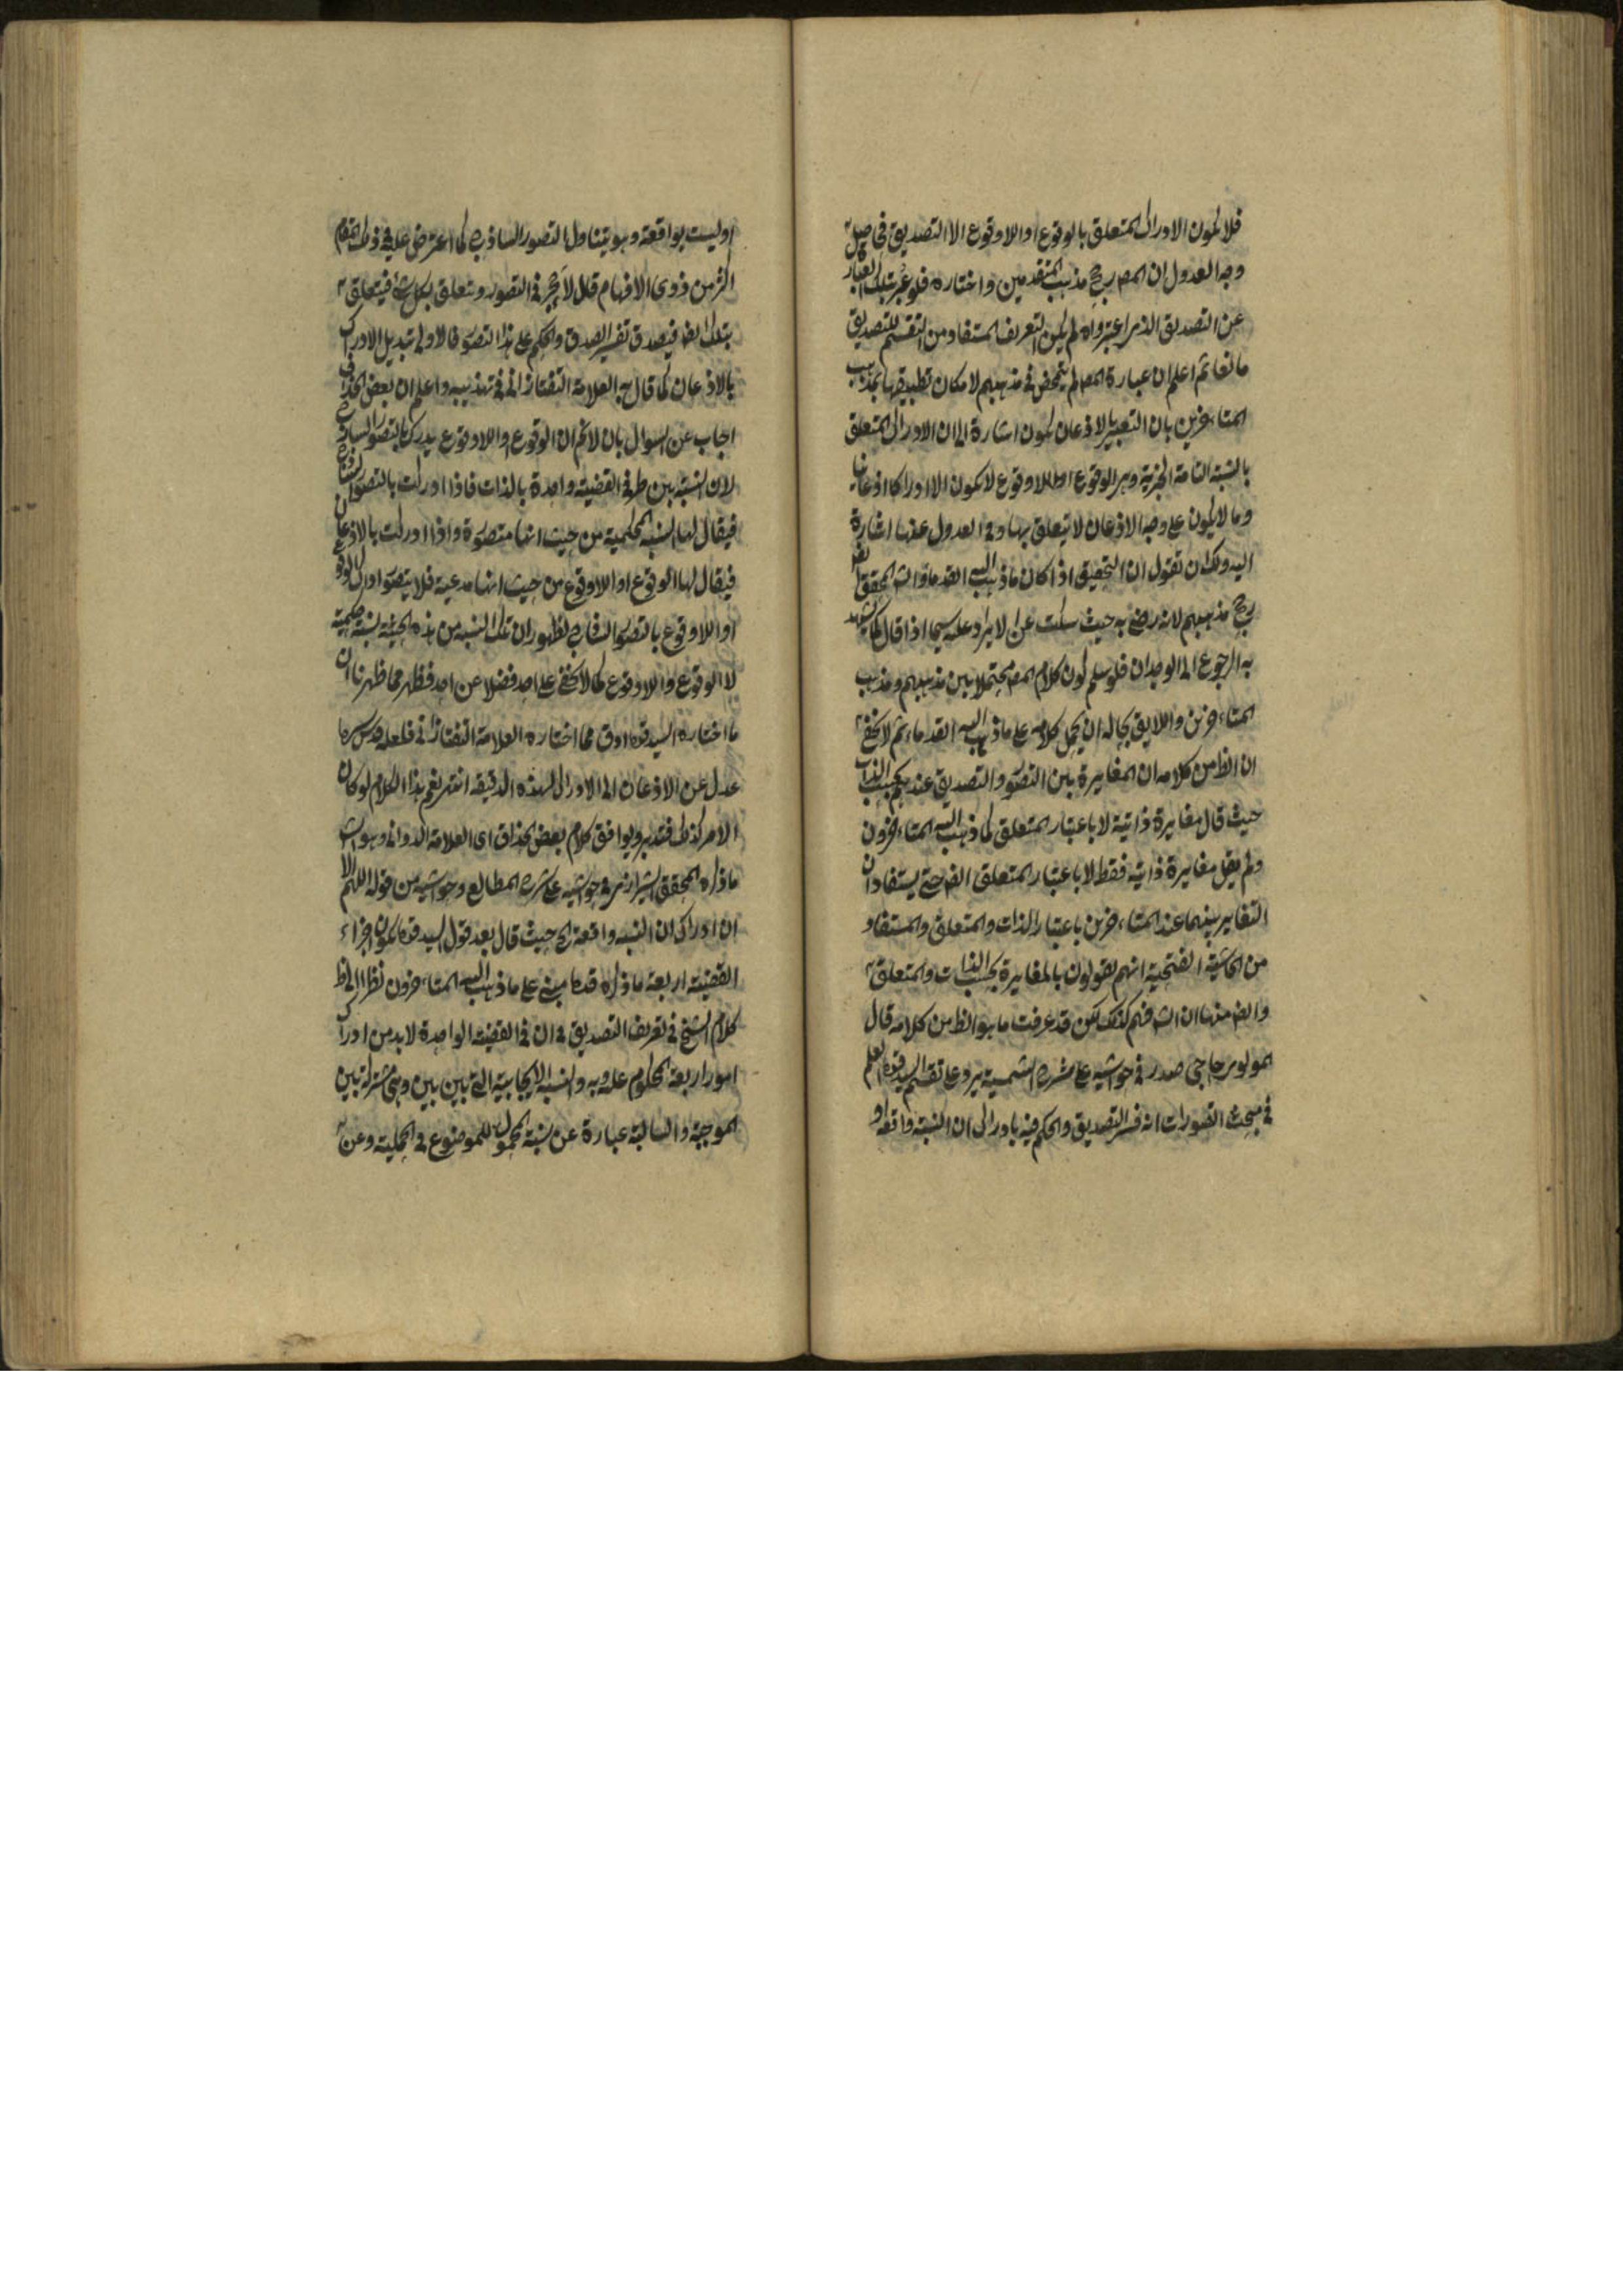 فلا يكون الادراك المتعلق بالوقوع او اللاوقوع الا التصديق فى صل
وجه العدول ان المص رجح مذهب المتقدمين واختاره فلو عبر بتلك العبارة
عن التصديق الذى اعتبروه لم يكن التعريف المستفاد من التقسيم للتصديق
مانعا ثم اعلم ان عبارة المص لم يتمحض فى مذهبهم لامكان تطبيقها بمذهب
المتاخرين بان التعبير بالاذعان يكون اشارة الى ان الادراك المتعلق
بالنسبة التامة الخبرية وهى الوقوع او اللاوقوع لا يكون الا ادراكا اذعانيا
وما لا يكون على وجه الاذعان لا يتعلق بها وفى العدول عنها اشارة
اليه ولك ان تقول ان التحقيق اذا كان ما ذهب اليه القدماء والش المحقق ايض
رجح مذهبهم لانه رضى به حيث سكت عن الايراد عليه سيما اذا قال كما يشهد
به الرجوع الى الوجدان فلو سلم كون كلام المص محتملا بين مذهبهم ومذهب
المتاخرين واللايق بحاله ان يحمل كلامه على ما ذهب اليه القدماء ثم لا يخفى
ان الظ من كلامه ان المغايرة بين التصور والتصديق عندهم بحسب الذات
حيث قال مغايرة ذاتية لا باعتبار المتعلق كما ذهب اليه المتاخرون
ولم يقل مغايرة ذاتية فقط لا باعتبار المتعلق ايض حتى يستفاد ان
التغاير بينهما عند المتاخرين باعتبار الذات والمتعلق والمستفاد
من الحاشية الفتحية انهم يقولون بالمغايرة بحسب الذات والمتعلق
وايض منها ان الش فهم كذلك لكن قد عرفت ما هو الظ من كلامه قال
المولوى حاجى صدر فى حواشيه على شرح الشمسية يرد على تقسيم السيد قده العلم
فى مبحث التصورات انه فسر التصديق والحكم فيه بادراك ان النسبة واقعة او
او ليست بواقعة وهو يتناول التصور الساذج كما اعترض عليه فى ذلك المقام
اكثر من ذوى الافهام قلل لا حجر فى التصور ويتعلق بكل شئ فيتعلق
بتلك ايض فيصدق تفسير الصدق والحكم على هذا التصور فالاولى تبديل الادراك
بالاذعان كما قال به العلامة التفتازانى فى تهذيبه واعلم ان بعض الحذاق
اجاب عن السوال بان لا نم ان الوقوع واللاوقوع يدرك بالتصور الساذج
لان النسبة بين طرفى القضية واحدة بالذات فاذا ادركت بالتصور الساذج
فيقال لها النسبة الحكمية من حيث انها متصورة واذا ادركت بالاذعان
فيقال لها الوقوع او اللاوقوع من حيث انها مدعية فلا يتصور ادراك الوقوع
او اللاوقوع بالتصور الساذج لظهور ان تلك النسبة من هذه الحيثية نسبة حكمية
لا الوقوع واللاوقوع كما لا يخفى على احد فضلا عن احد فظهر مما ظهرنا ان
ما اختاره السيد قده ادق مما اختاره العلامة التفتازانى فلعله قدس سره
عدل عن الاذعان الى الادراك لهذه الدقيقه انتهى نعم هذا الكلام لو كان
الامر كذلك فتدبر ويوافق كلام بعض الحذاق اى العلامة الدوانى وهو
ما ذكره المحقق الشيرازى فى حواشيه على شرح المطالع وحواشيه من قوله اللهم الا
ان ادراك ان النسبه واقعة الخ حيث قال بعد قول السيد قده يكون اجزاء
القضية اربعة ما ذكره قده مبنى على ما ذهب اليه المتاخرون نظرا الى ظ
كلام الشيخ فى تعريف التصديق فى ان فى القضية الواحدة لا بد من ادراك
امور اربعة المحكوم عليه وبه والنسبة الايجابية التى بين بين وهى مشتركة بين
الموجبة والسالبة عبارة عن نسبة المحمول للموضوع فى الحملية وعن